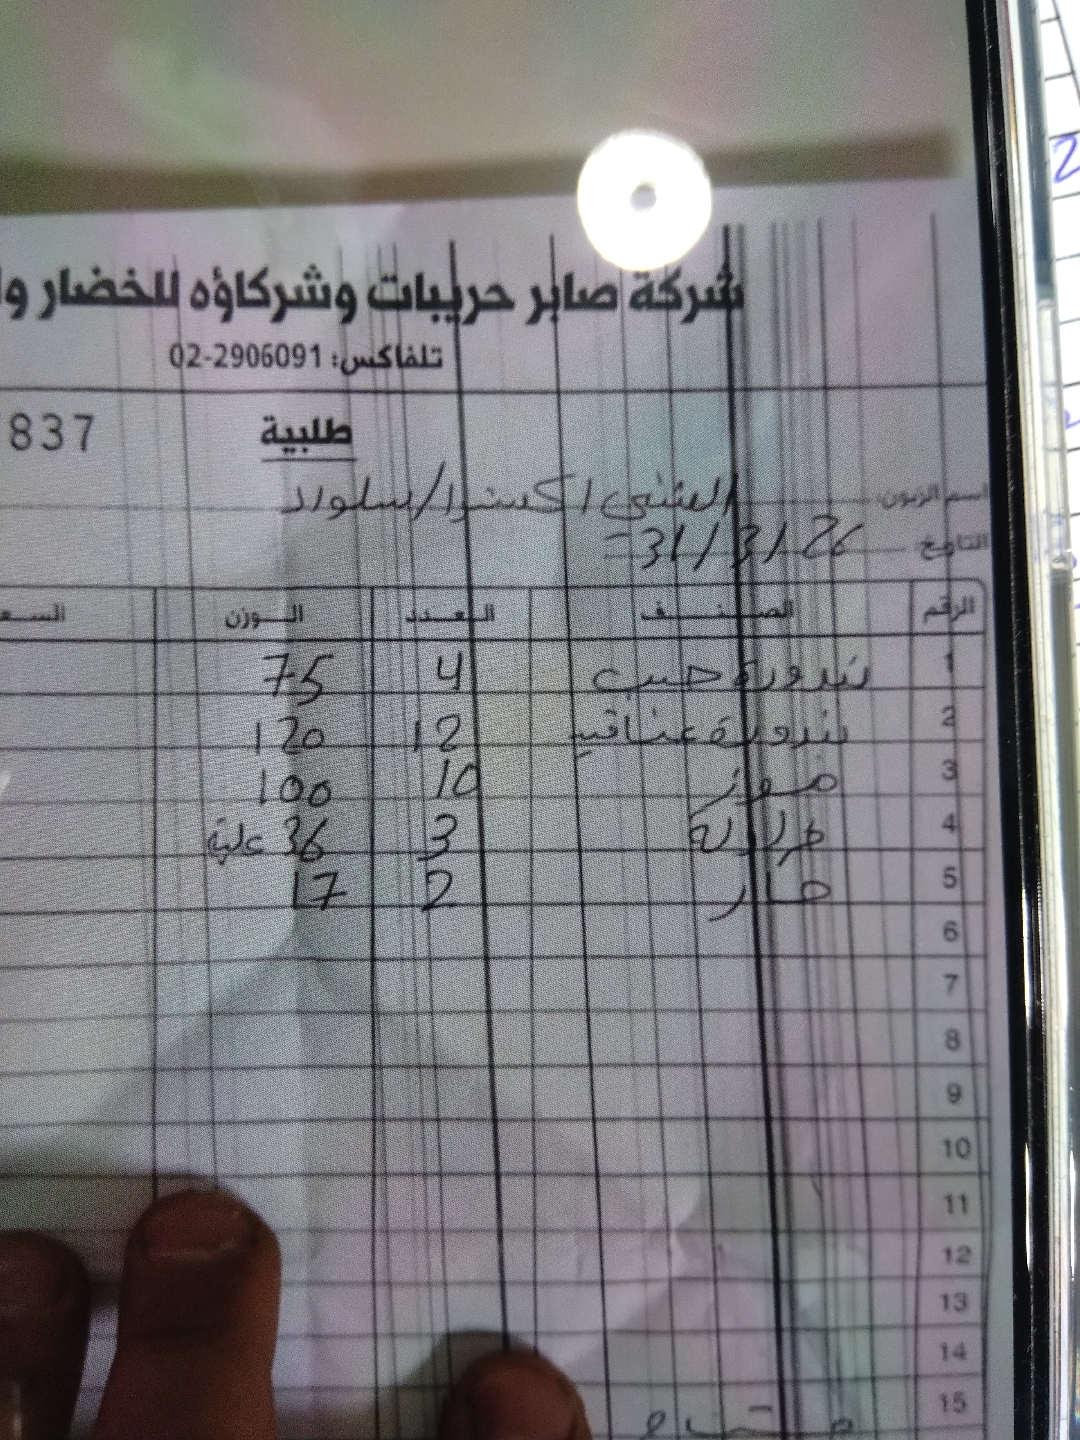 شركة صابر حريبات وشركاؤه للخضار
تلفاكس: 02-2906091
837 طلبية
اسم الزبون: المثنى اكسترا/سلواد
التاريخ 31/3/26
الرقم الصنف العدد الوزن
1 بندورة حب 4 75
2 بندورة عناقيد 12 120
3 موز 10 100
4 فراولة 3 36 علبة
5 حار 2 17
6
7
8
9
10
11
12
13
14
15